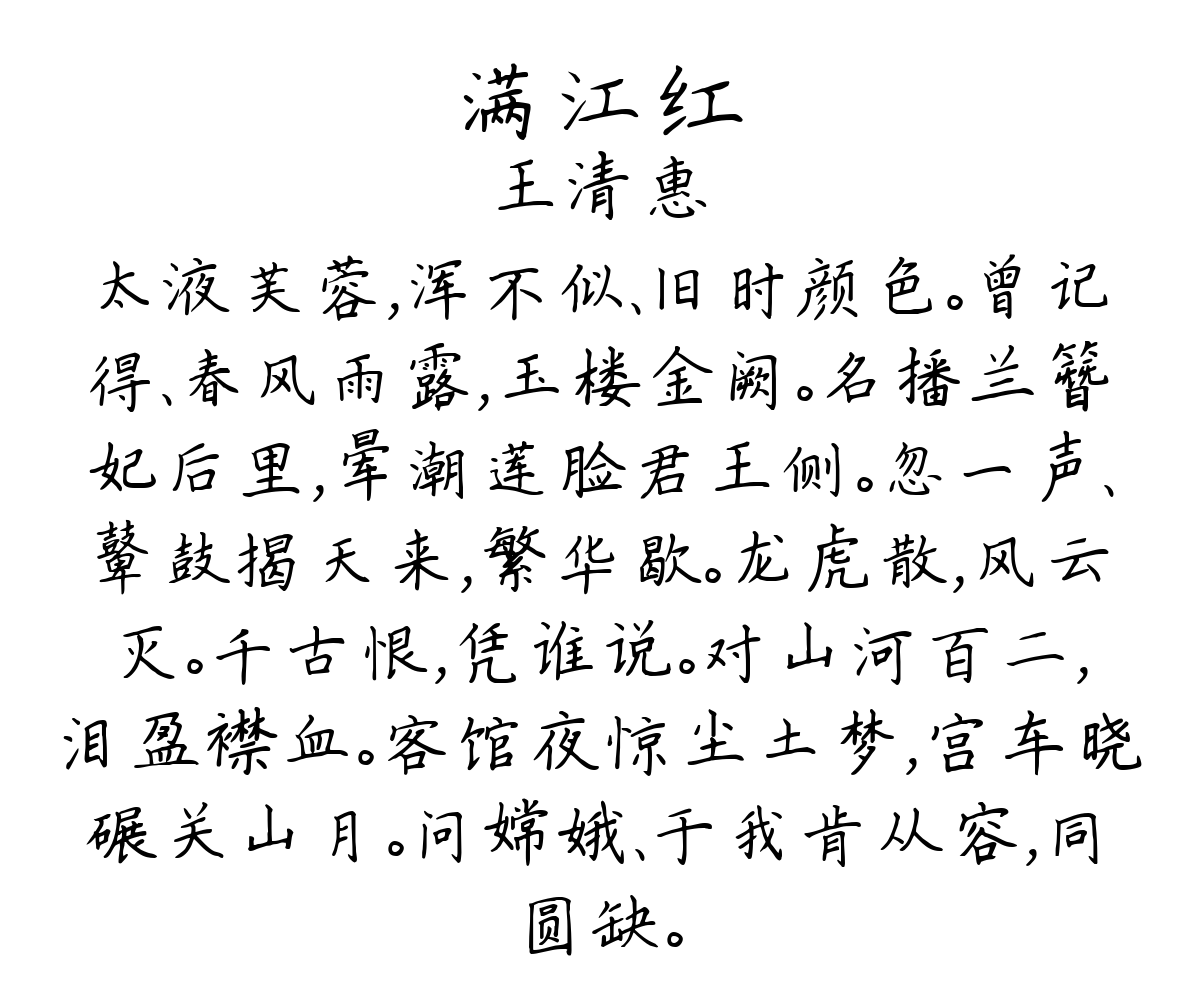 满江红
王清惠
太液芙蓉,浑不似、旧时颜色。曾记
得、春风雨露,玉楼金阙。名播兰簪
妃后里,晕潮莲脸君王侧。忽一声、
鼙鼓揭天来,繁华歇。龙虎散,风云
灭。千古恨,凭谁说。对山河百二,
泪盈襟血。客馆夜惊尘土梦,宫车晓
碾关山月。问嫦娥、于我肯从容,同
圆缺。